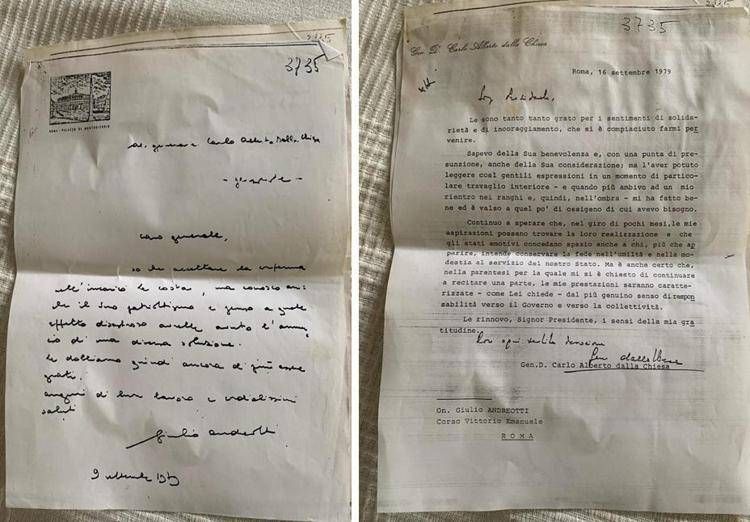 3735
3735
ROMA - PALAZZO DI MONTECITORIO
Al generale Carlo Alberto dalla Chiesa
- generale -
Caro generale,
so che accettare da
all'incarico le costa, ma conosco an
che il Suo patriottismo e
effetto disastroso avrebbe avuto l'annun
cio di una diversa soluzione.
Le dobbiamo quindi ancora di più essere
grati.
auguri di buon lavoro e cordialissimi
saluti
Giulio Andreotti
9 settembre 1979
3735
3735
Gen. D. Carlo Alberto dalla Chiesa
Roma, 16 settembre 1979
Sig. Presidente,
Le sono tanto tanto grato per i sentimenti di solida-
rietà e di incoraggiamento, che si è compiaciuto farmi per
venire.
Sapevo della Sua benevolenza e, con una punta di pre-
sunzione, anche della Sua considerazione; ma l'aver potuto
leggere così gentili espressioni in un momento di partico-
lare travaglio interiore - e quando più ambivo ad un mio
rientro nei ranghi e, quindi, nell'ombra - mi ha fatto be-
ne ed è valso a quel po' di ossigeno di cui avevo bisogno.
Continuo a sperare che, nel giro di pochi mesi, le mie
aspirazioni possano trovare la loro realizzazione e che
gli stati emotivi concedano spazio anche a chi, più che ap
parire, intende conservare la fede nell'umiltà e nella mo-
destia al servizio del nostro Stato. Ma è anche certo che,
nella parentesi per la quale mi si è chiesto di continuare
a recitare una parte, le mie prestazioni saranno caratte-
rizzate - come Lei chiede - dal più genuino senso di respon
sabilità verso il Governo e verso la collettività.
Le rinnovo, Signor Presidente, i sensi della mia gra
titudine.
Con ogni sentita devozione
Gen. dalla Chiesa
Gen.D. Carlo Alberto dalla Chiesa
On. Giulio ANDREOTTI
Corso Vittorio Emanuele
R O M A